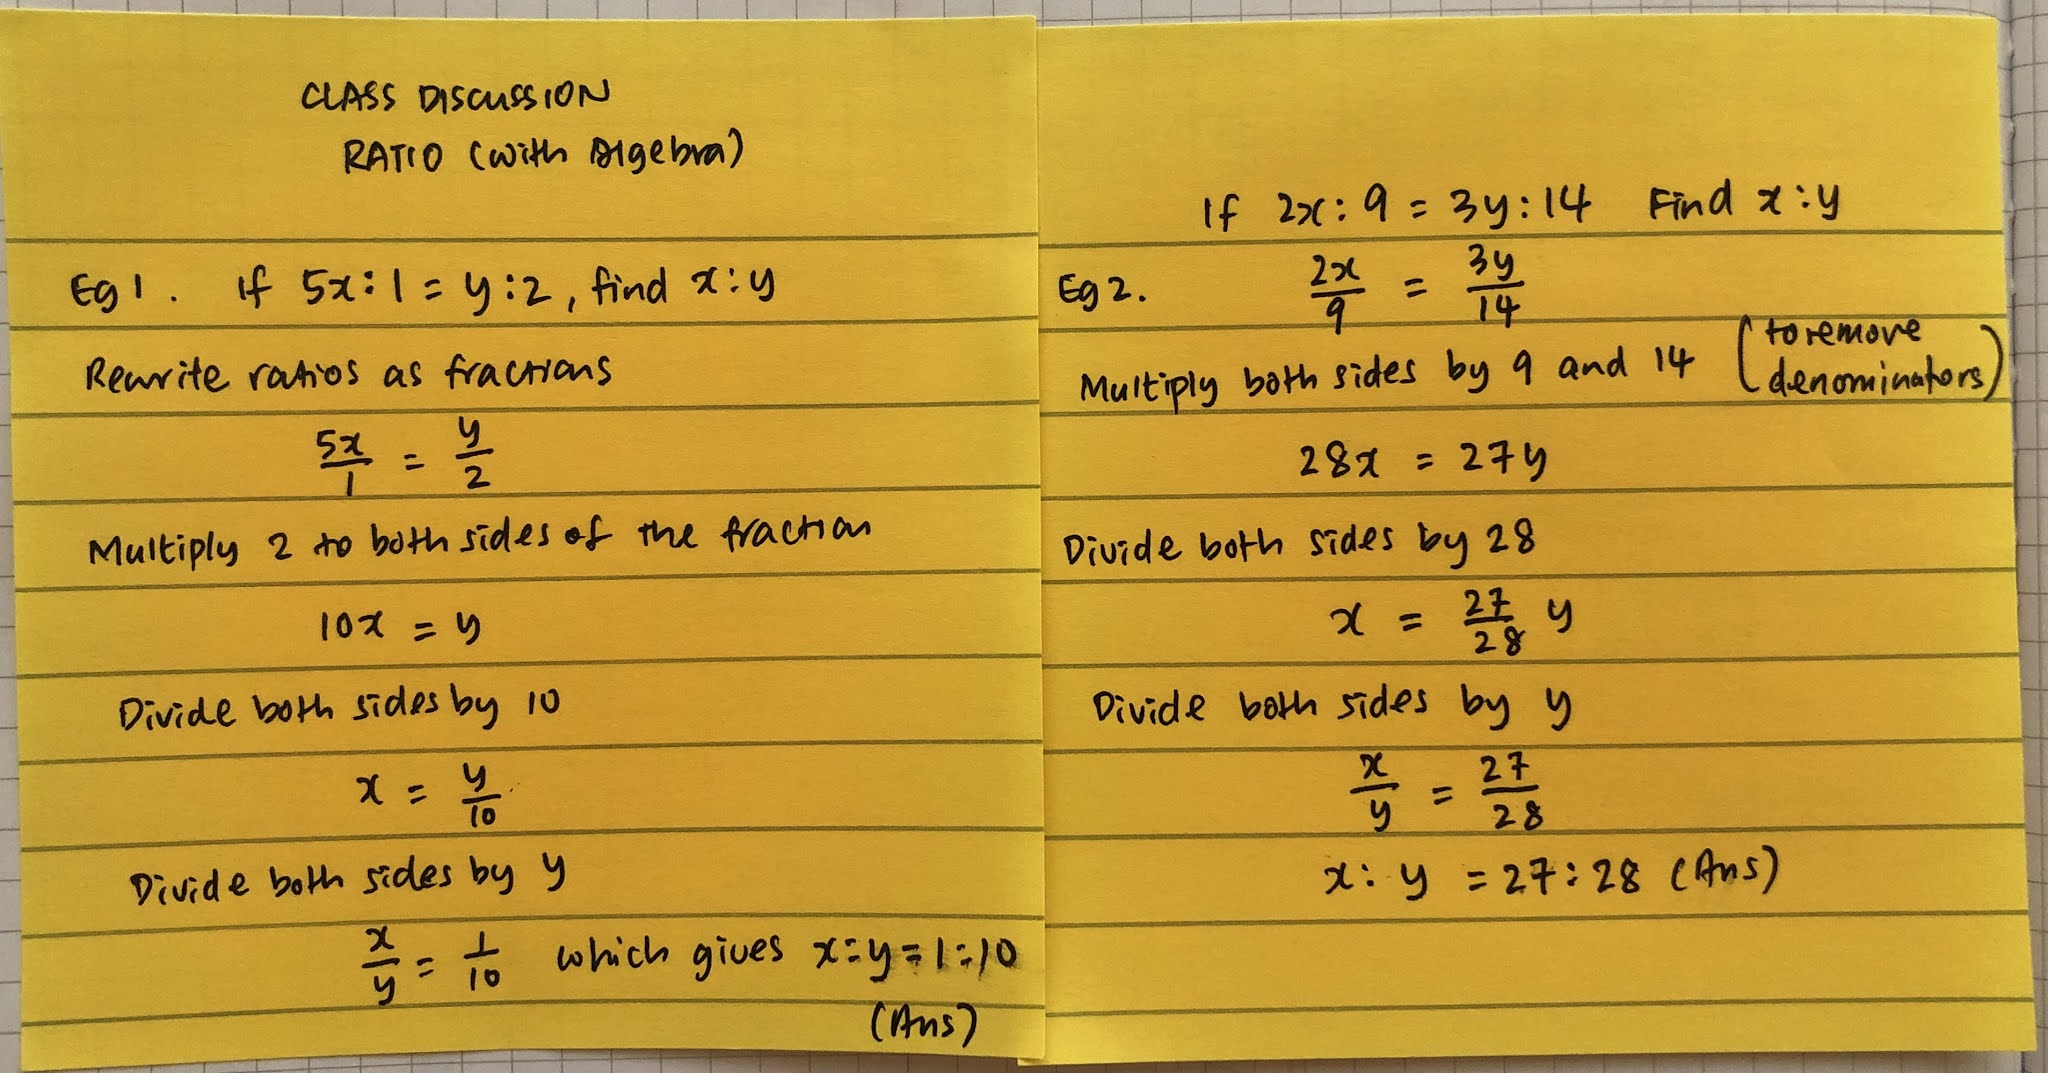 CLASS DISCUSSION
RATIO (with Algebra)
Eg 1. If 5x:1 = y:2, find x:y
Rewrite ratios as fractions
5x/1 = y/2
Multiply 2 to both sides of the fraction
10x = y
Divide both sides by 10
x = y/10
Divide both sides by y
x/y = 1/10 which gives x:y = 1:10
(Ans)
If 2x:9 = 3y:14 Find x:y
Eg 2. 2x/9 = 3y/14
Multiply both sides by 9 and 14 (to remove denominators)
28x = 27y
Divide both sides by 28
x = 27/28 y
Divide both sides by y
x/y = 27/28
x:y = 27:28 (Ans)